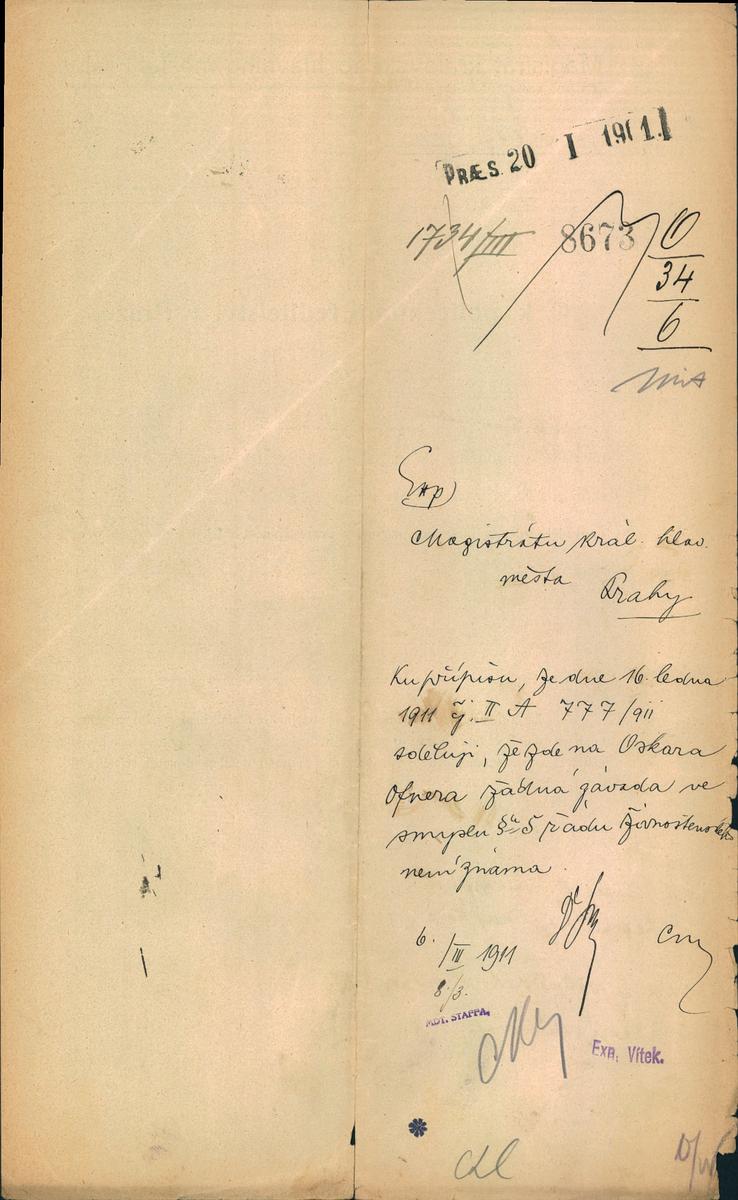 PRÆS. 20 I 1911
1734/III 8673 0
34
6
Exp
Magistrátu král. hlav.
města
Prahy
Ku přípisu, ze dne 16. ledna
1911 čj. II A 777/911
sděluji, že zde na Oskara
Ofnera žádná závada ve
smyslu §u 5 řádu živnostenského
není známa.
6.
/III 1911
8./3.
MDT. STAPPA.
Exp. Vítek.